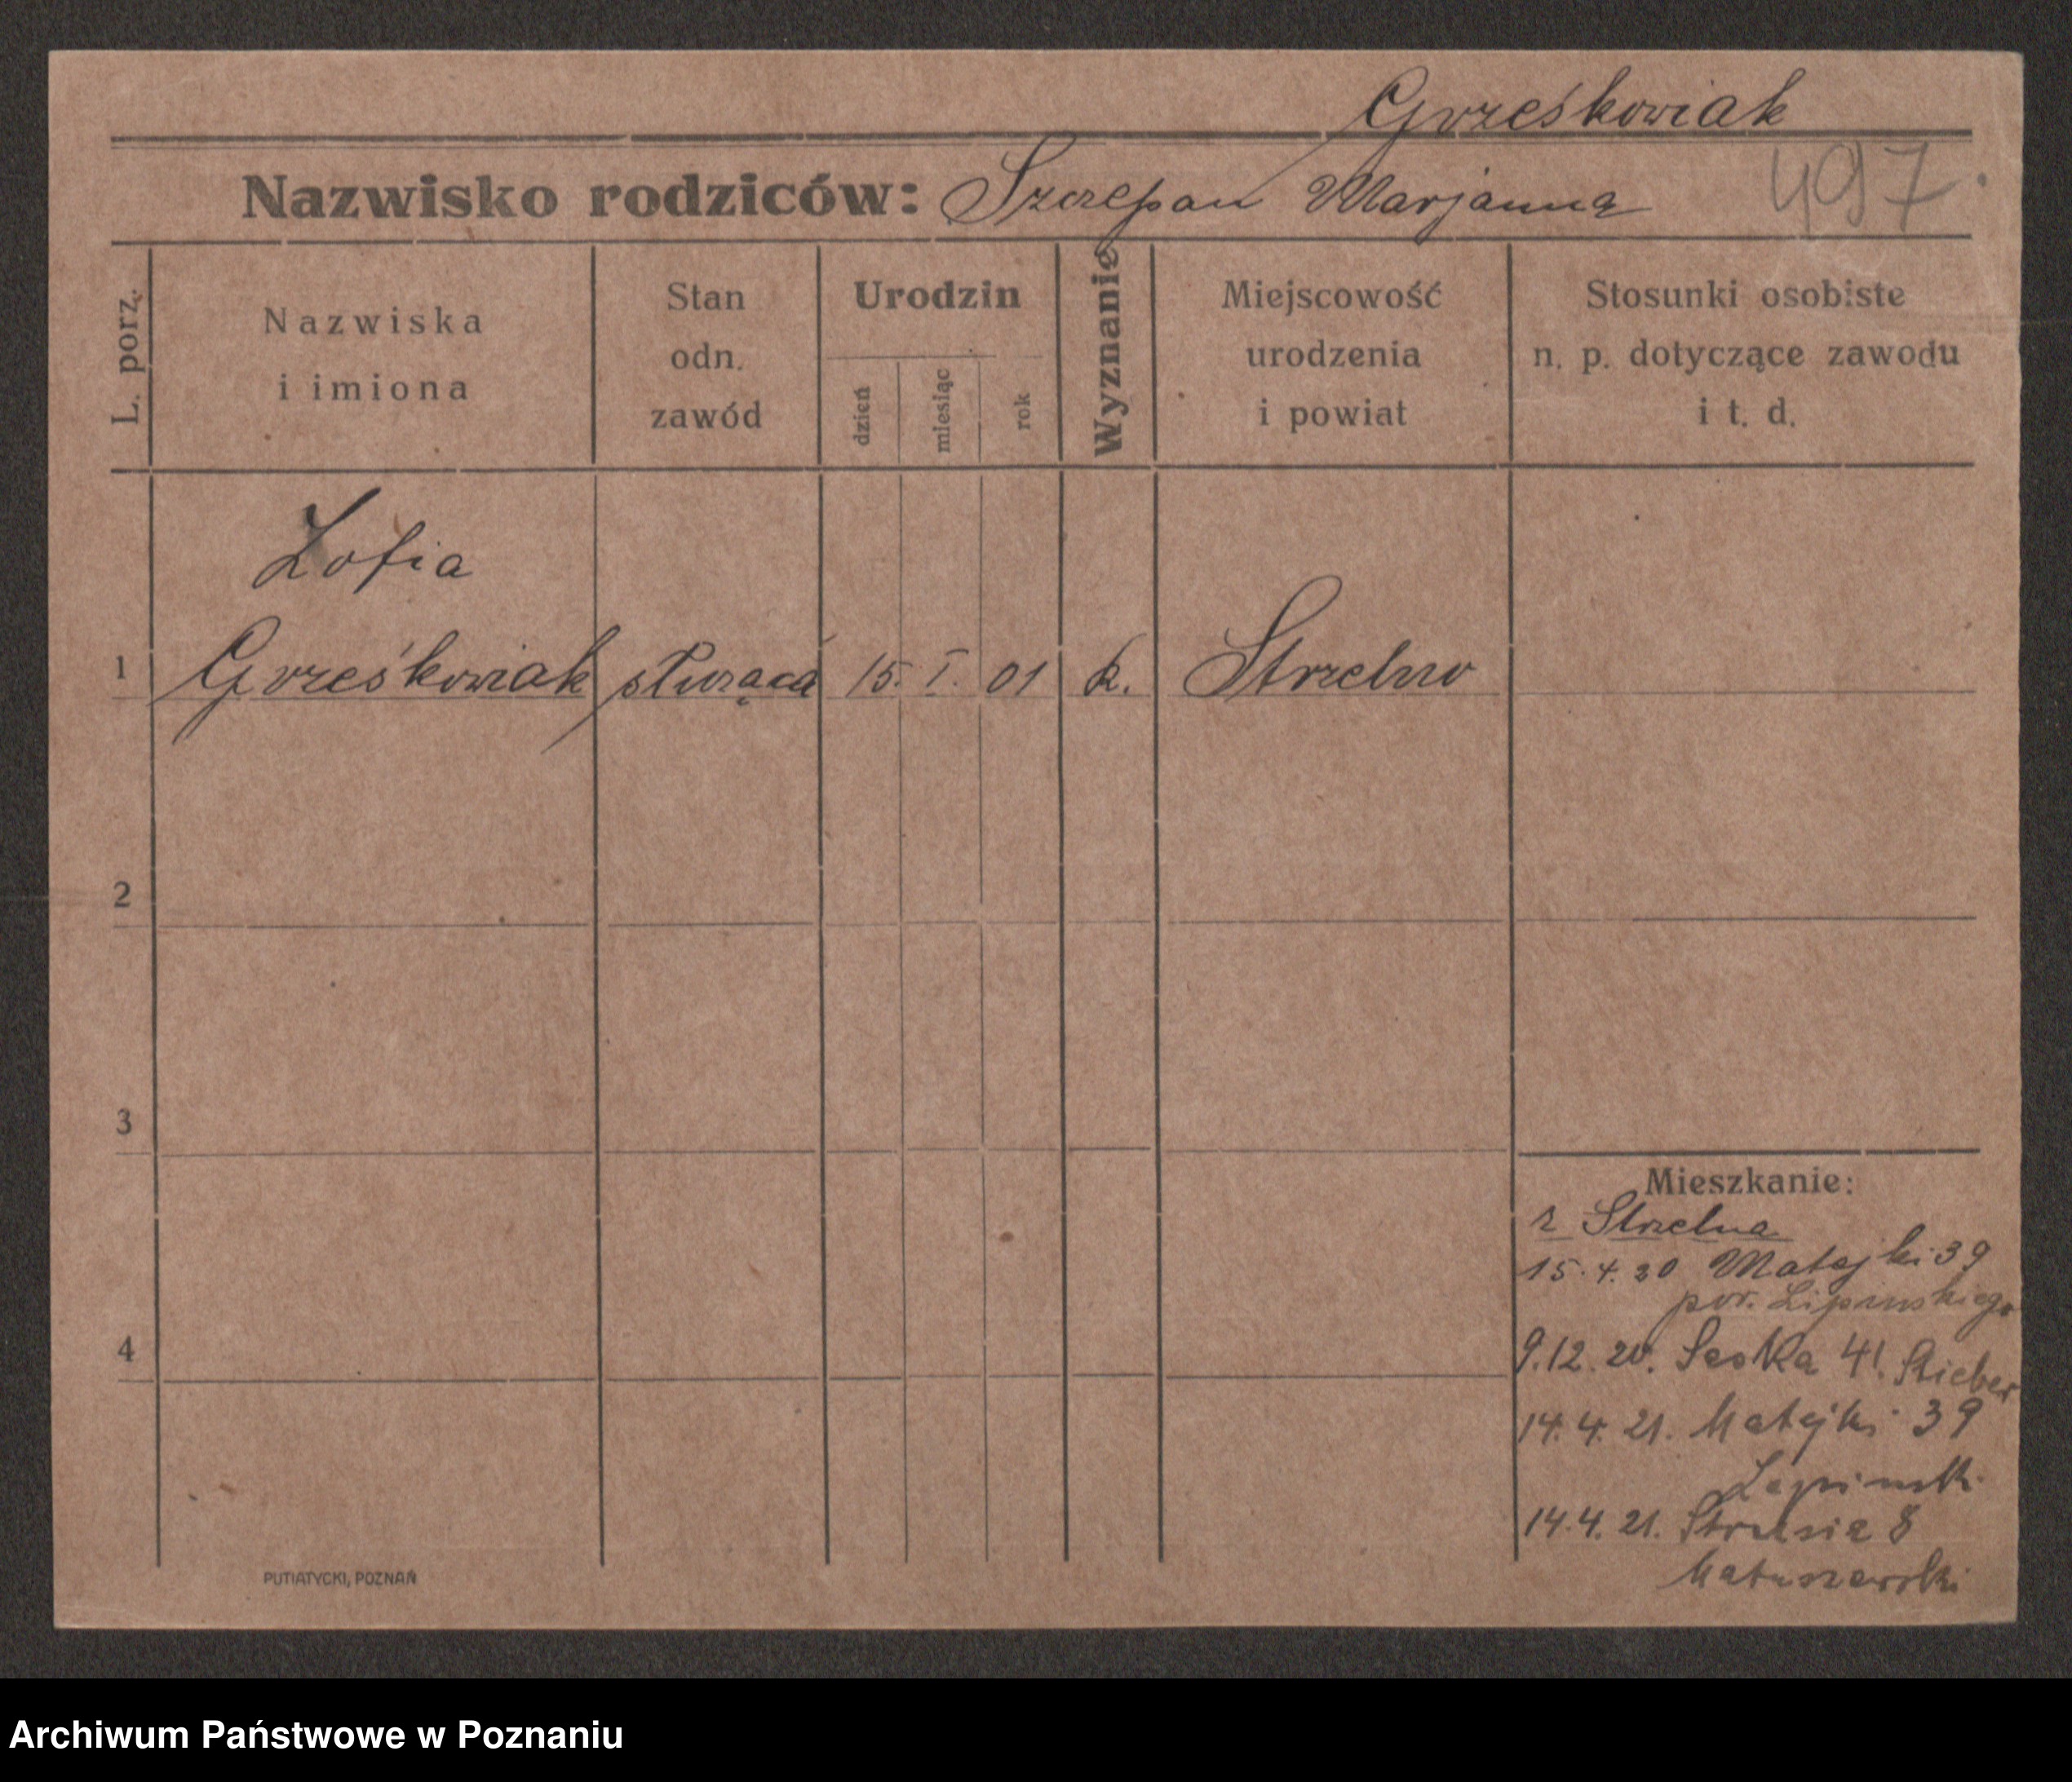 Grześkowiak
Nazwisko rodziców: Szczepan Marjanna 497.
L. porz.
Nazwiska
i imiona
Stan
odn.
zawód
Urodzin
dzień
miesiąc
rok
Wyznanie
Miejscowość
urodzenia
i powiat
Stosunki osobiste
n. p. dotyczące zawodu
i t. d.
Zofia
1 Grześkowiak służąca 15. I. 01 k. Strzelno
2
3
4
Mieszkanie:
z Strzelna
15.4.20 Matejki 39
por. Lipinskiego
9.12.20. 41. Stieber
14.4.21. Matejki 39
Lipinski
14.4.21. 8
Matuszewski
PUTIATYCKI, POZNAŃ
Archiwum Państwowe w Poznaniu